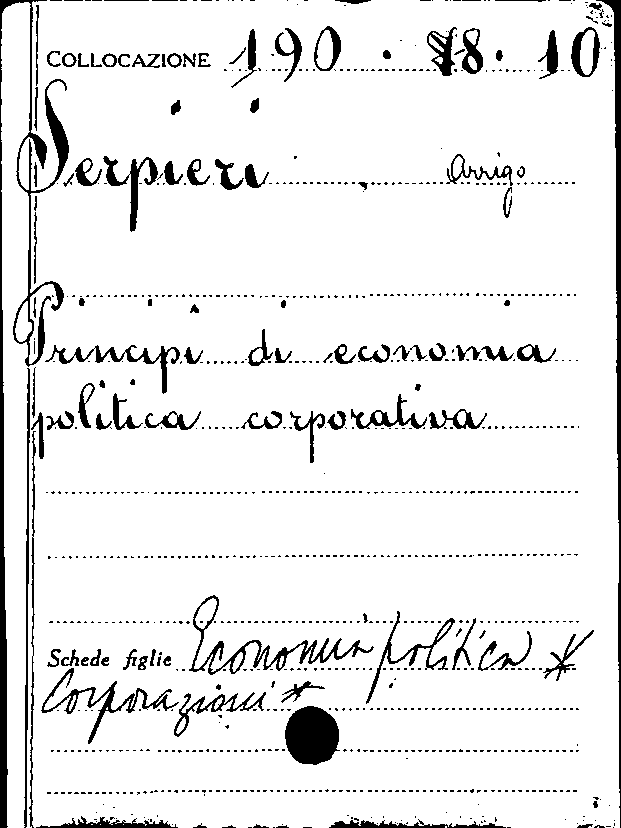 COLLOCAZIONE 190 . 18 . 10
Serpieri Arrigo
Principi di economia
politica corporativa
Schede figlie Economia politica *
Corporazioni *